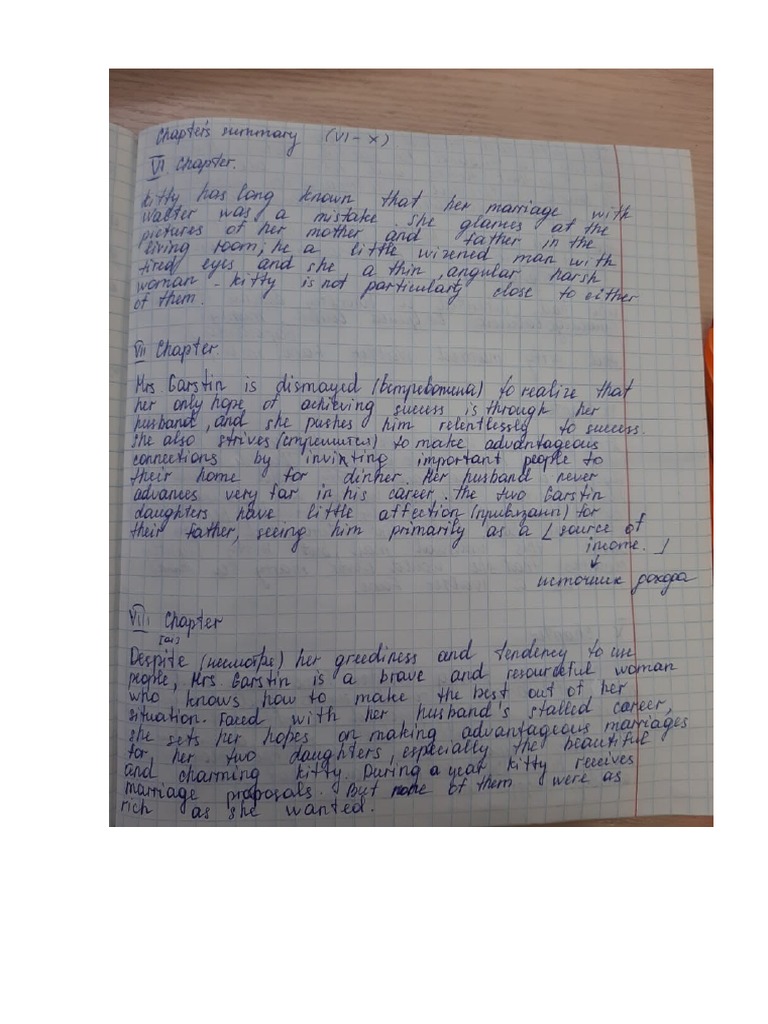 Chapters summary (VI-X)
VI Chapter.
Kitty has long known that her marriage with
Walter was a mistake. She glances at the
pictures of her mother and father in the
living room; he a little wizened man with
tired eyes and she a thin, angular harsh
woman. Kitty is not particulary close to either
of them.
VII Chapter.
Mrs. Garstin is dismayed (встревожена) to realize that
her only hope of achieving success is through her
husband, and she pushes him relentlessly to success.
She also strives (стремится) to make advantageous
connections by inviting important people to
their home for dinner. Her husband never
advances very far in his career. The two Garstin
daughters have little affection (привязан) for
their father, seeing him primarily as a [source of
income.]
источник дохода
VIII Chapter
[ai]
Despite (несмотря) her greediness and tendency to use
people, Mrs. Garstin is a brave and resourceful woman
who knows how to make the best out of her
situation. Faced with her husband's stalled career,
she sets her hopes on making advantageous marriages
for her two daughters, especially the beautiful
and charming Kitty. During a year Kitty receives
marriage proposals. But none of them were as
rich as she wanted.